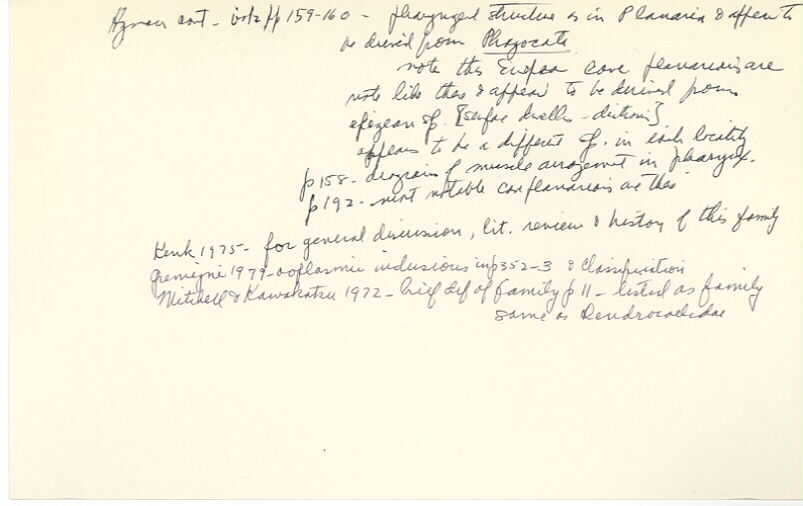 Hyman cont - vol 2 pp 159-160 - pharyngeal structure as in Planaria & appear to
be derived from Phagocata
note the European cave planarians are
note like these & appear to be derived from
epigean sp. [surface dwellers - dictionary]
appears to be a different sp. in each locality
p 158 - diagrams of muscle arrangement in pharynx.
p 192 - most notable cave planarians are these
Kenk 1975 - for general discussion, lit. review & history of this family
Gremigni 1979 - ooplasmic inclusions in p 352-3 & classification
Mitchell & Kawakatsu 1972 - brief def of family p 11 - listed as family
same as Dendrocoelidae